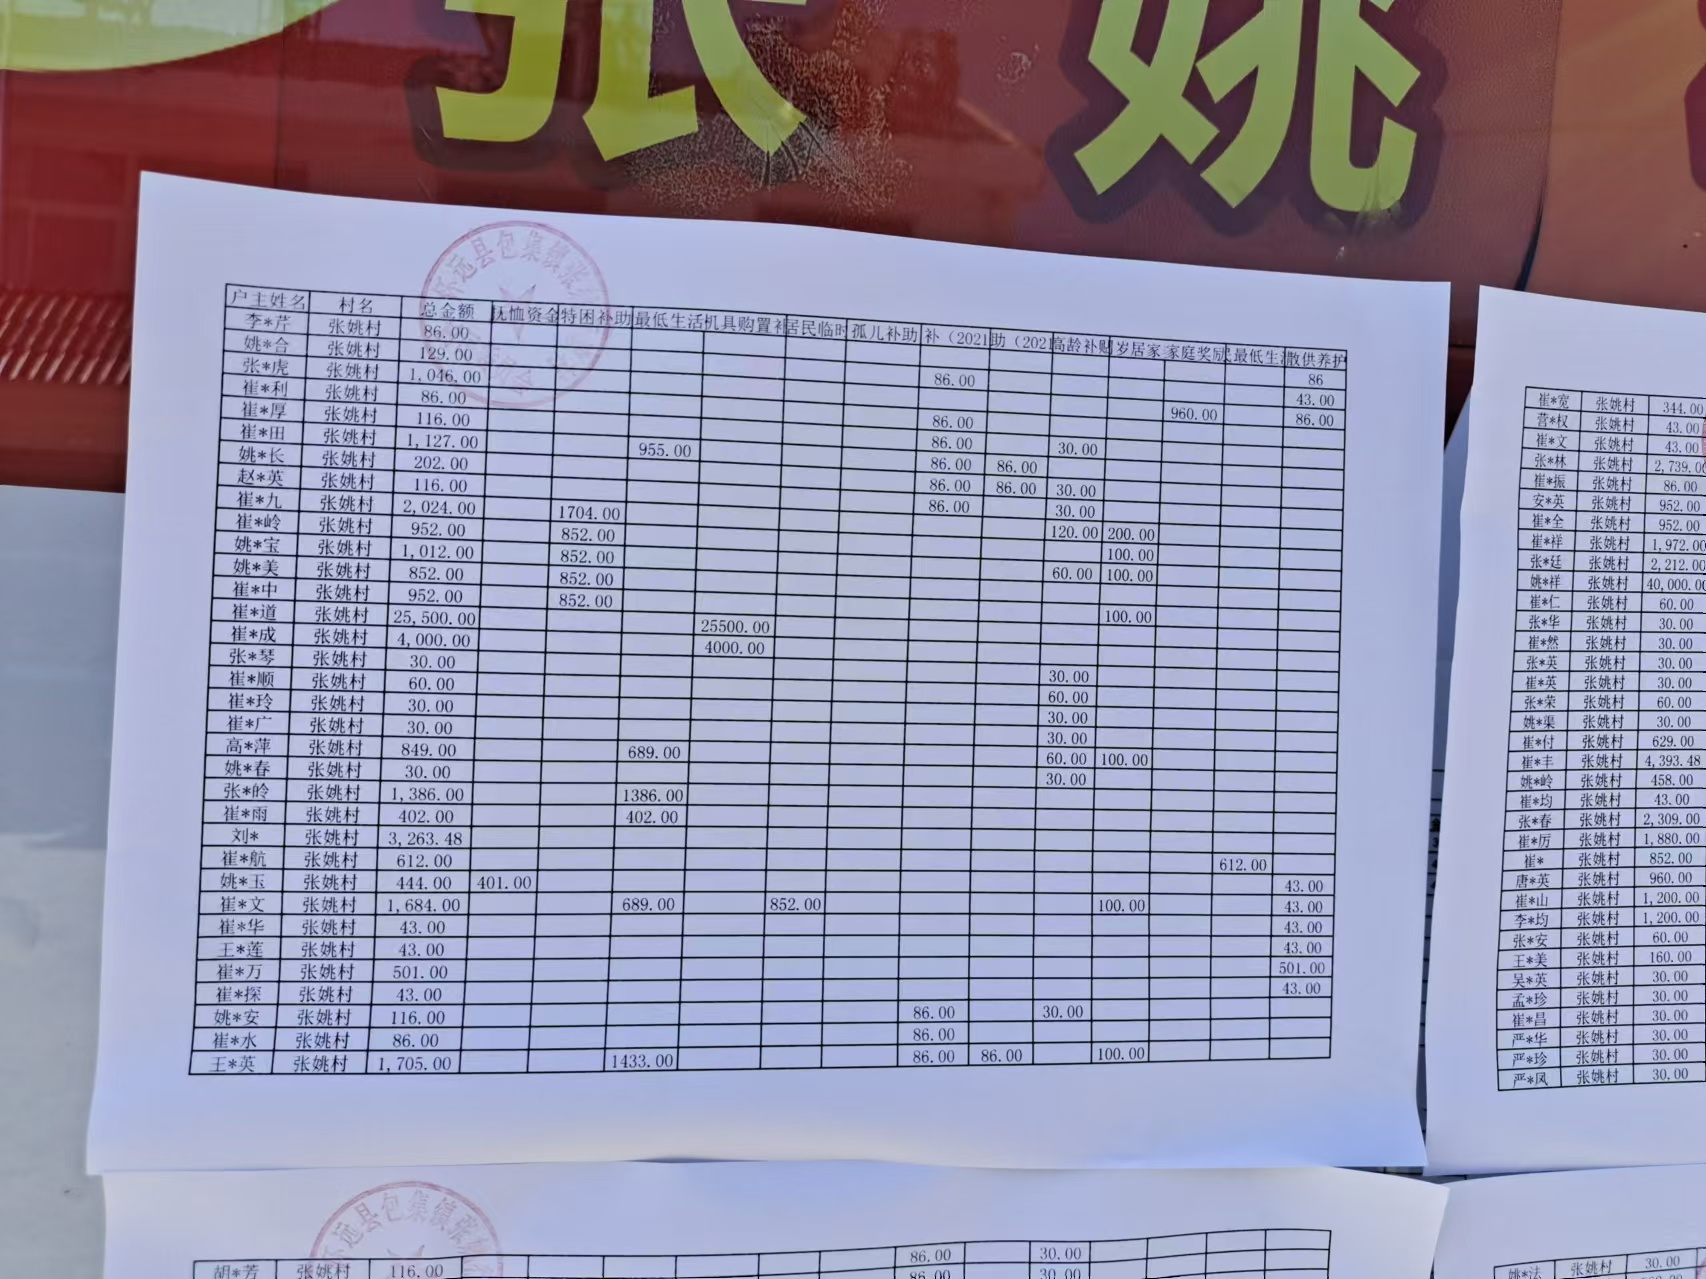 张 姚
怀远县包集镇张
户主姓名 村名 总金额 抚恤资金 特困补助 最低生活 机具购置补 居民临时 孤儿补助 补（2021 助（2021 高龄补贴 岁居家 家庭奖励 最低生活 散供养护
李*芹 张姚村 86.00 86
姚*合 张姚村 129.00 86.00 43.00
张*虎 张姚村 1,046.00 960.00 86.00
崔*利 张姚村 86.00 86.00
崔*厚 张姚村 116.00 86.00 30.00
崔*田 张姚村 1,127.00 955.00 86.00 86.00
姚*长 张姚村 202.00 86.00 86.00 30.00
赵*英 张姚村 116.00 86.00 30.00
崔*九 张姚村 2,024.00 1704.00 120.00 200.00
崔*岭 张姚村 952.00 852.00 100.00
姚*宝 张姚村 1,012.00 852.00 60.00 100.00
姚*美 张姚村 852.00 852.00
崔*中 张姚村 952.00 852.00 100.00
崔*道 张姚村 25,500.00 25500.00
崔*成 张姚村 4,000.00 4000.00
张*琴 张姚村 30.00 30.00
崔*顺 张姚村 60.00 60.00
崔*玲 张姚村 30.00 30.00
崔*广 张姚村 30.00 30.00
高*萍 张姚村 849.00 689.00 60.00 100.00
姚*春 张姚村 30.00 30.00
张* 张姚村 1,386.00 1386.00
崔*雨 张姚村 402.00 402.00
刘* 张姚村 3,263.48
崔*航 张姚村 612.00 612.00
姚*玉 张姚村 444.00 401.00 43.00
崔*文 张姚村 1,684.00 689.00 852.00 100.00 43.00
崔*华 张姚村 43.00 43.00
王*莲 张姚村 43.00 43.00
崔*万 张姚村 501.00 501.00
崔*探 张姚村 43.00 43.00
姚*安 张姚村 116.00 86.00 30.00
崔*水 张姚村 86.00 86.00
王*英 张姚村 1,705.00 1433.00 86.00 86.00 100.00
崔*宽 张姚村 344.00
营*权 张姚村 43.00
崔*文 张姚村 43.00
张*林 张姚村 2,739.00
崔*振 张姚村 86.00
安*英 张姚村 952.00
崔*全 张姚村 952.00
崔*祥 张姚村 1,972.00
张*廷 张姚村 2,212.00
姚*祥 张姚村 40,000.00
崔*仁 张姚村 60.00
张*华 张姚村 30.00
崔*然 张姚村 30.00
张*英 张姚村 30.00
崔*英 张姚村 30.00
张*荣 张姚村 60.00
姚*渠 张姚村 30.00
崔*付 张姚村 629.00
崔*丰 张姚村 4,393.48
姚*岭 张姚村 458.00
崔*均 张姚村 43.00
张*春 张姚村 2,309.00
崔*厉 张姚村 1,880.00
崔* 张姚村 852.00
唐*英 张姚村 960.00
崔*山 张姚村 1,200.00
李*均 张姚村 1,200.00
张*安 张姚村 60.00
王*美 张姚村 160.00
吴*英 张姚村 30.00
孟*珍 张姚村 30.00
崔*昌 张姚村 30.00
严*华 张姚村 30.00
严*珍 张姚村 30.00
严*凤 张姚村 30.00
怀远县包集镇张
86.00 30.00
胡*芳 张姚村 116.00 86.00 30.00
姚*法 张姚村 30.00